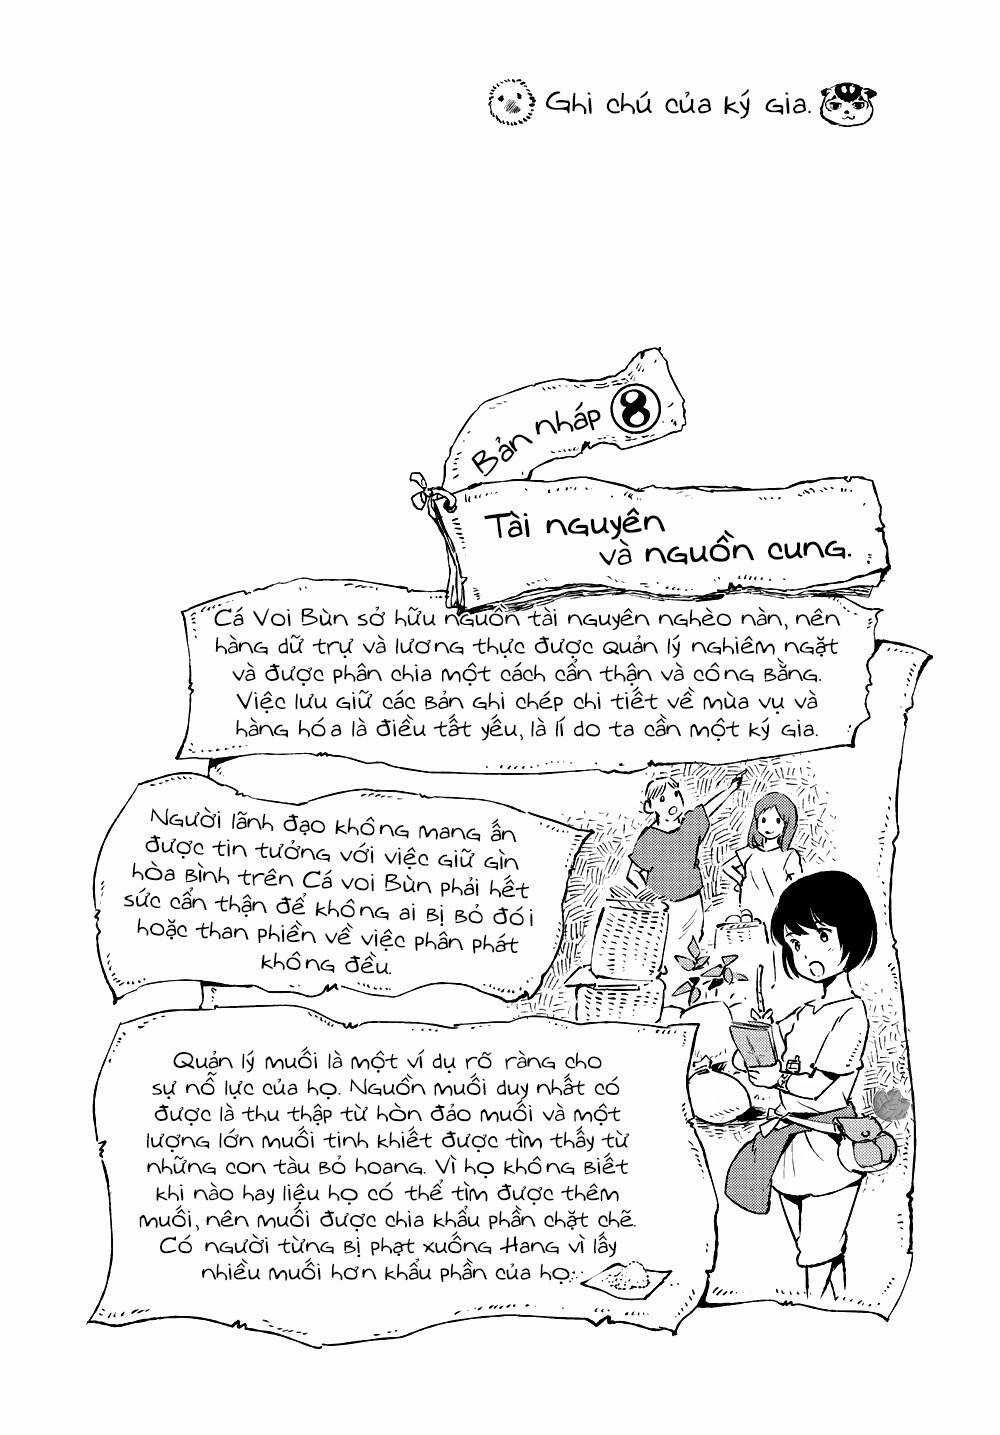 Ghi chú của ký gia.
Bản nháp 8
Tài nguyên
và nguồn cung.
Cá Voi Bùn sở hữu nguồn tài nguyên nghèo nàn, nên
hàng dữ trự và lương thực được quản lý nghiêm ngặt
và được phân chia một cách cẩn thận và công bằng.
Việc lưu giữ các bản ghi chép chi tiết về mùa vụ và
hàng hóa là điều tất yếu, là lí do ta cần một ký gia.
Người lãnh đạo không mang ấn
được tin tưởng với việc giữ gìn
hòa bình trên Cá voi Bùn phải hết
sức cẩn thận để không ai bị bỏ đói
hoặc than phiền về việc phân phát
không đều.
Quản lý muối là một ví dụ rõ ràng cho
sự nỗ lực của họ. Nguồn muối duy nhất có
được là thu thập từ hòn đảo muối và một
lượng lớn muối tinh khiết được tìm thấy từ
những con tàu bỏ hoang. Vì họ không biết
khi nào hay liệu họ có thể tìm được thêm
muối, nên muối được chia khẩu phần chặt chẽ.
Có người từng bị phạt xuống Hang vì lấy
nhiều muối hơn khẩu phần của họ.